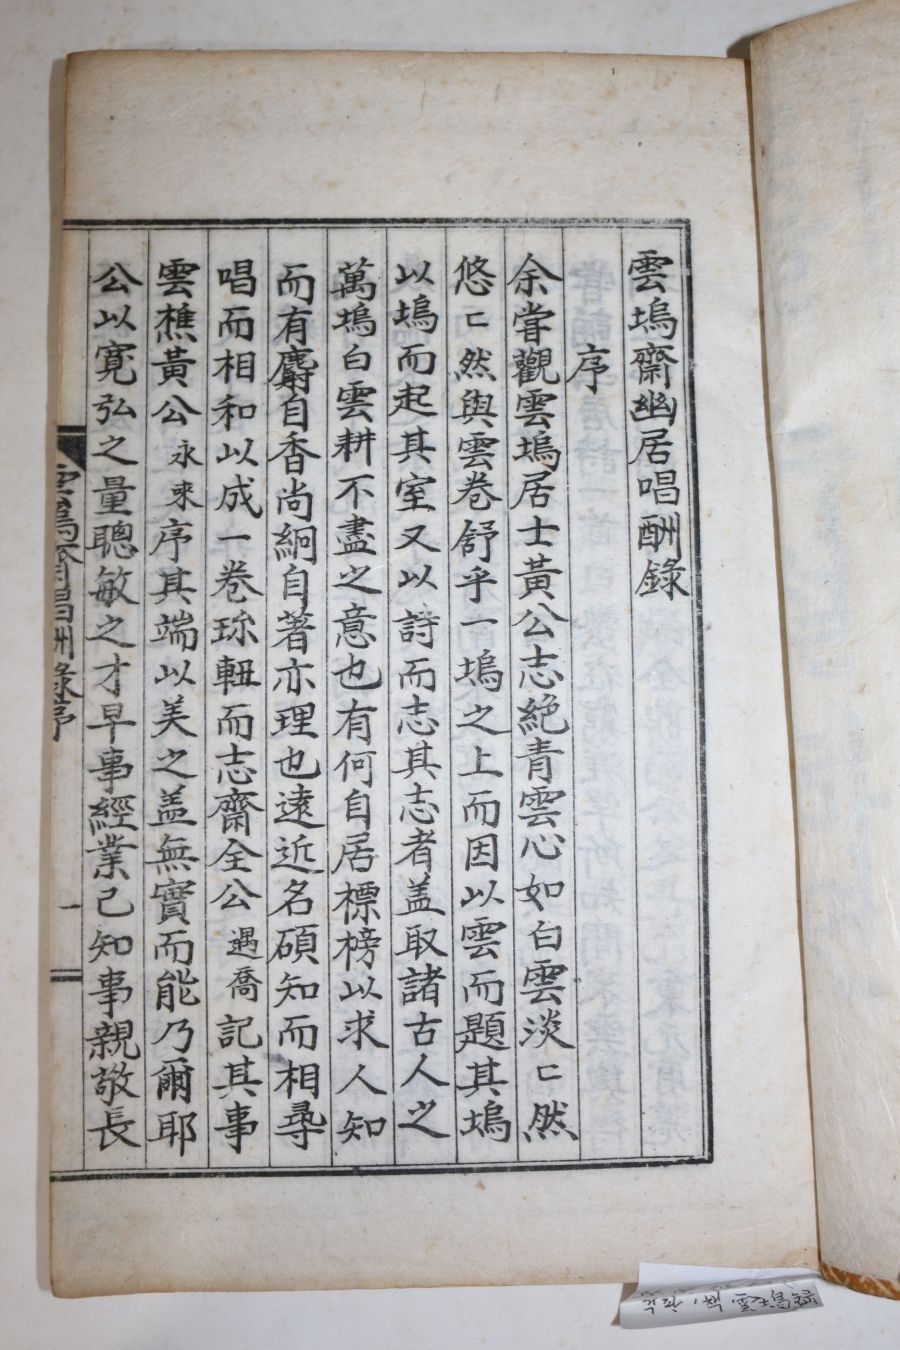 雲塢齋幽居唱酬錄
序
余甞觀雲塢居士黃公志絶青雲心如白雲淡〻然
悠〻然與雲卷舒乎一塢之上而因以雲而題其塢
以塢而起其室又以詩而志其志者盖取諸古人之
萬塢白雲耕不盡之意也有何自居標榜以求人知
而有麝自香尚絅自著亦理也遠近名碩知而相尋
唱而相和以成一卷珎軸而志齋全公遇喬記其事
雲樵黃公永來序其端以美之盖無實而能乃爾耶
公以寛弘之量聰敏之才早事經業已知事親敬長
雲塢齋唱酬錄序
一